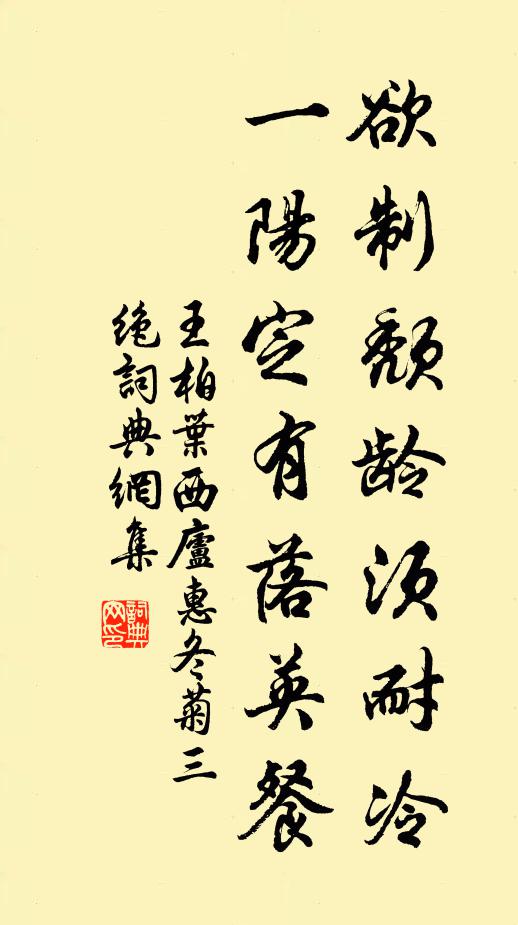 欲制颓龄须耐冷
一陽定有落英餐
王柏葉西廬惠冬菊三
绝詞典網集
詞典网印